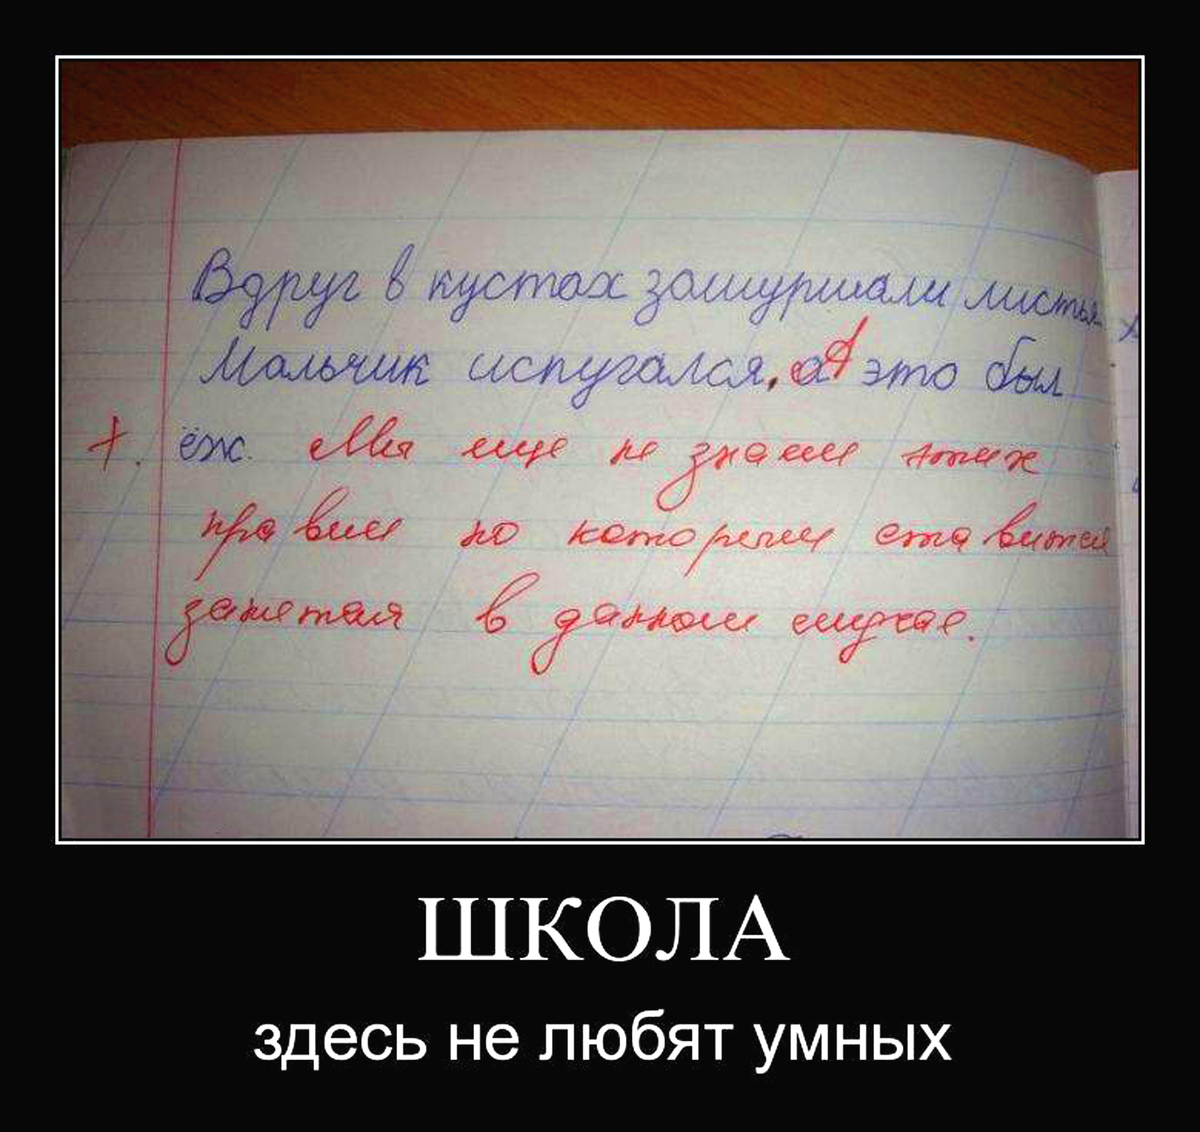 Вдруг в кустах зашуршали листья
Мальчик испугался, а А это был
+. ёж. Мы еще не знаем таких
правил по которым ставится
запятая в данном случае.
ШКОЛА
здесь не любят умных